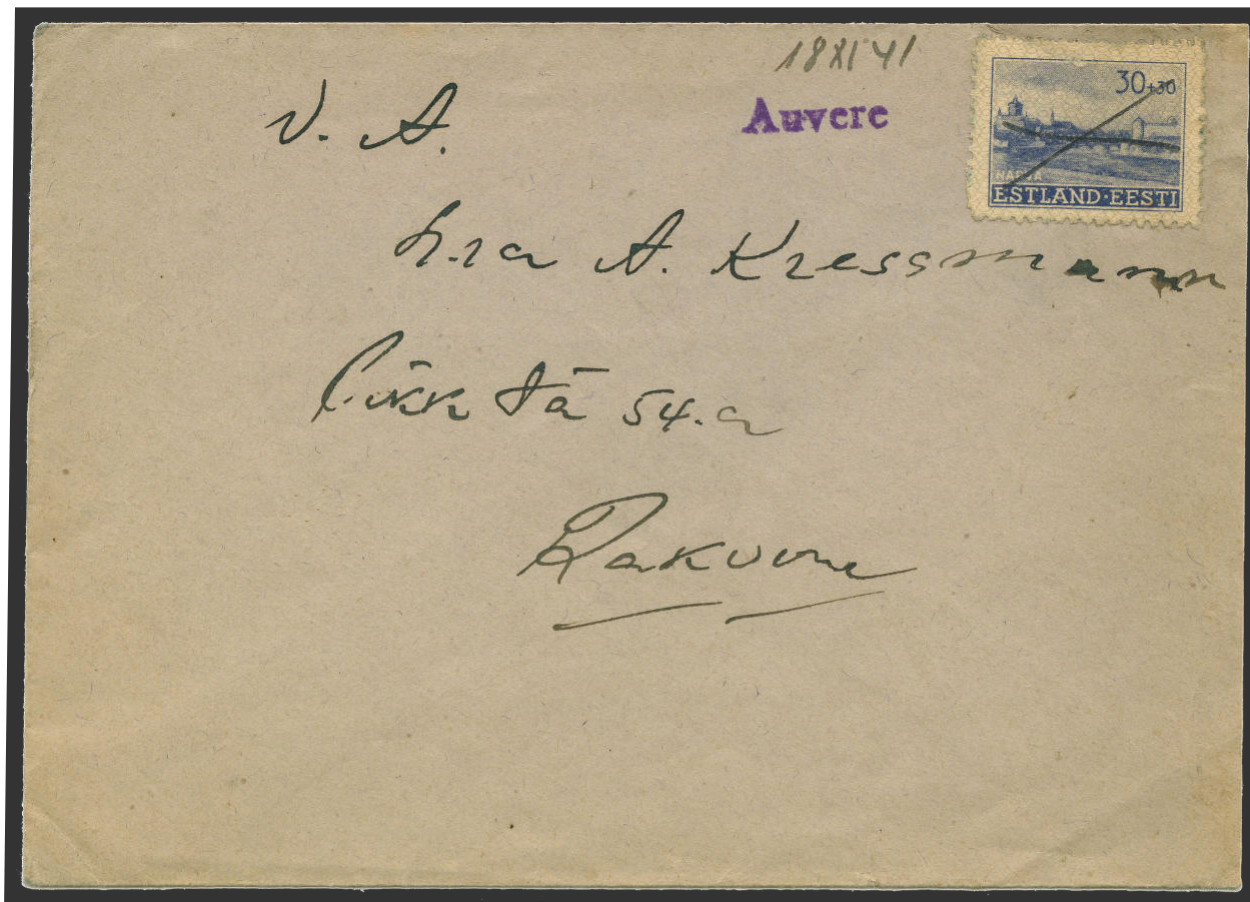 18 XI 41
Auvere
30+30
NARVA
ESTLAND·EESTI
V. A.
h-ra A. Kressmann
Pikk tä 54.a
Rakvere